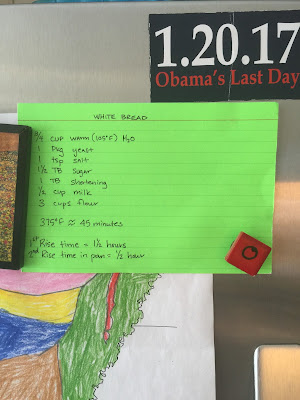 1.20.17
Obama's Last Day
WHITE BREAD
3/4 CUP warm (105°F) H₂O
1 Pkg yeast
1 tsp salt
1½ TB Sugar
1 TB shortening
½ cup milk
3 cups flour
375°F ≈ 45 minutes
1st Rise time = 1½ hours
2nd Rise time in pan = ½ hour